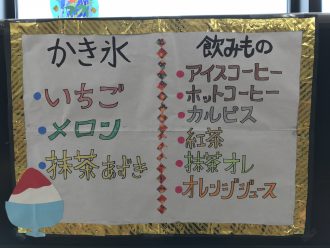 かき氷
いちご
メロン
抹茶あずき
飲みもの
アイスコーヒー
ホットコーヒー
カルピス
紅茶
抹茶オレ
オレンジジュース